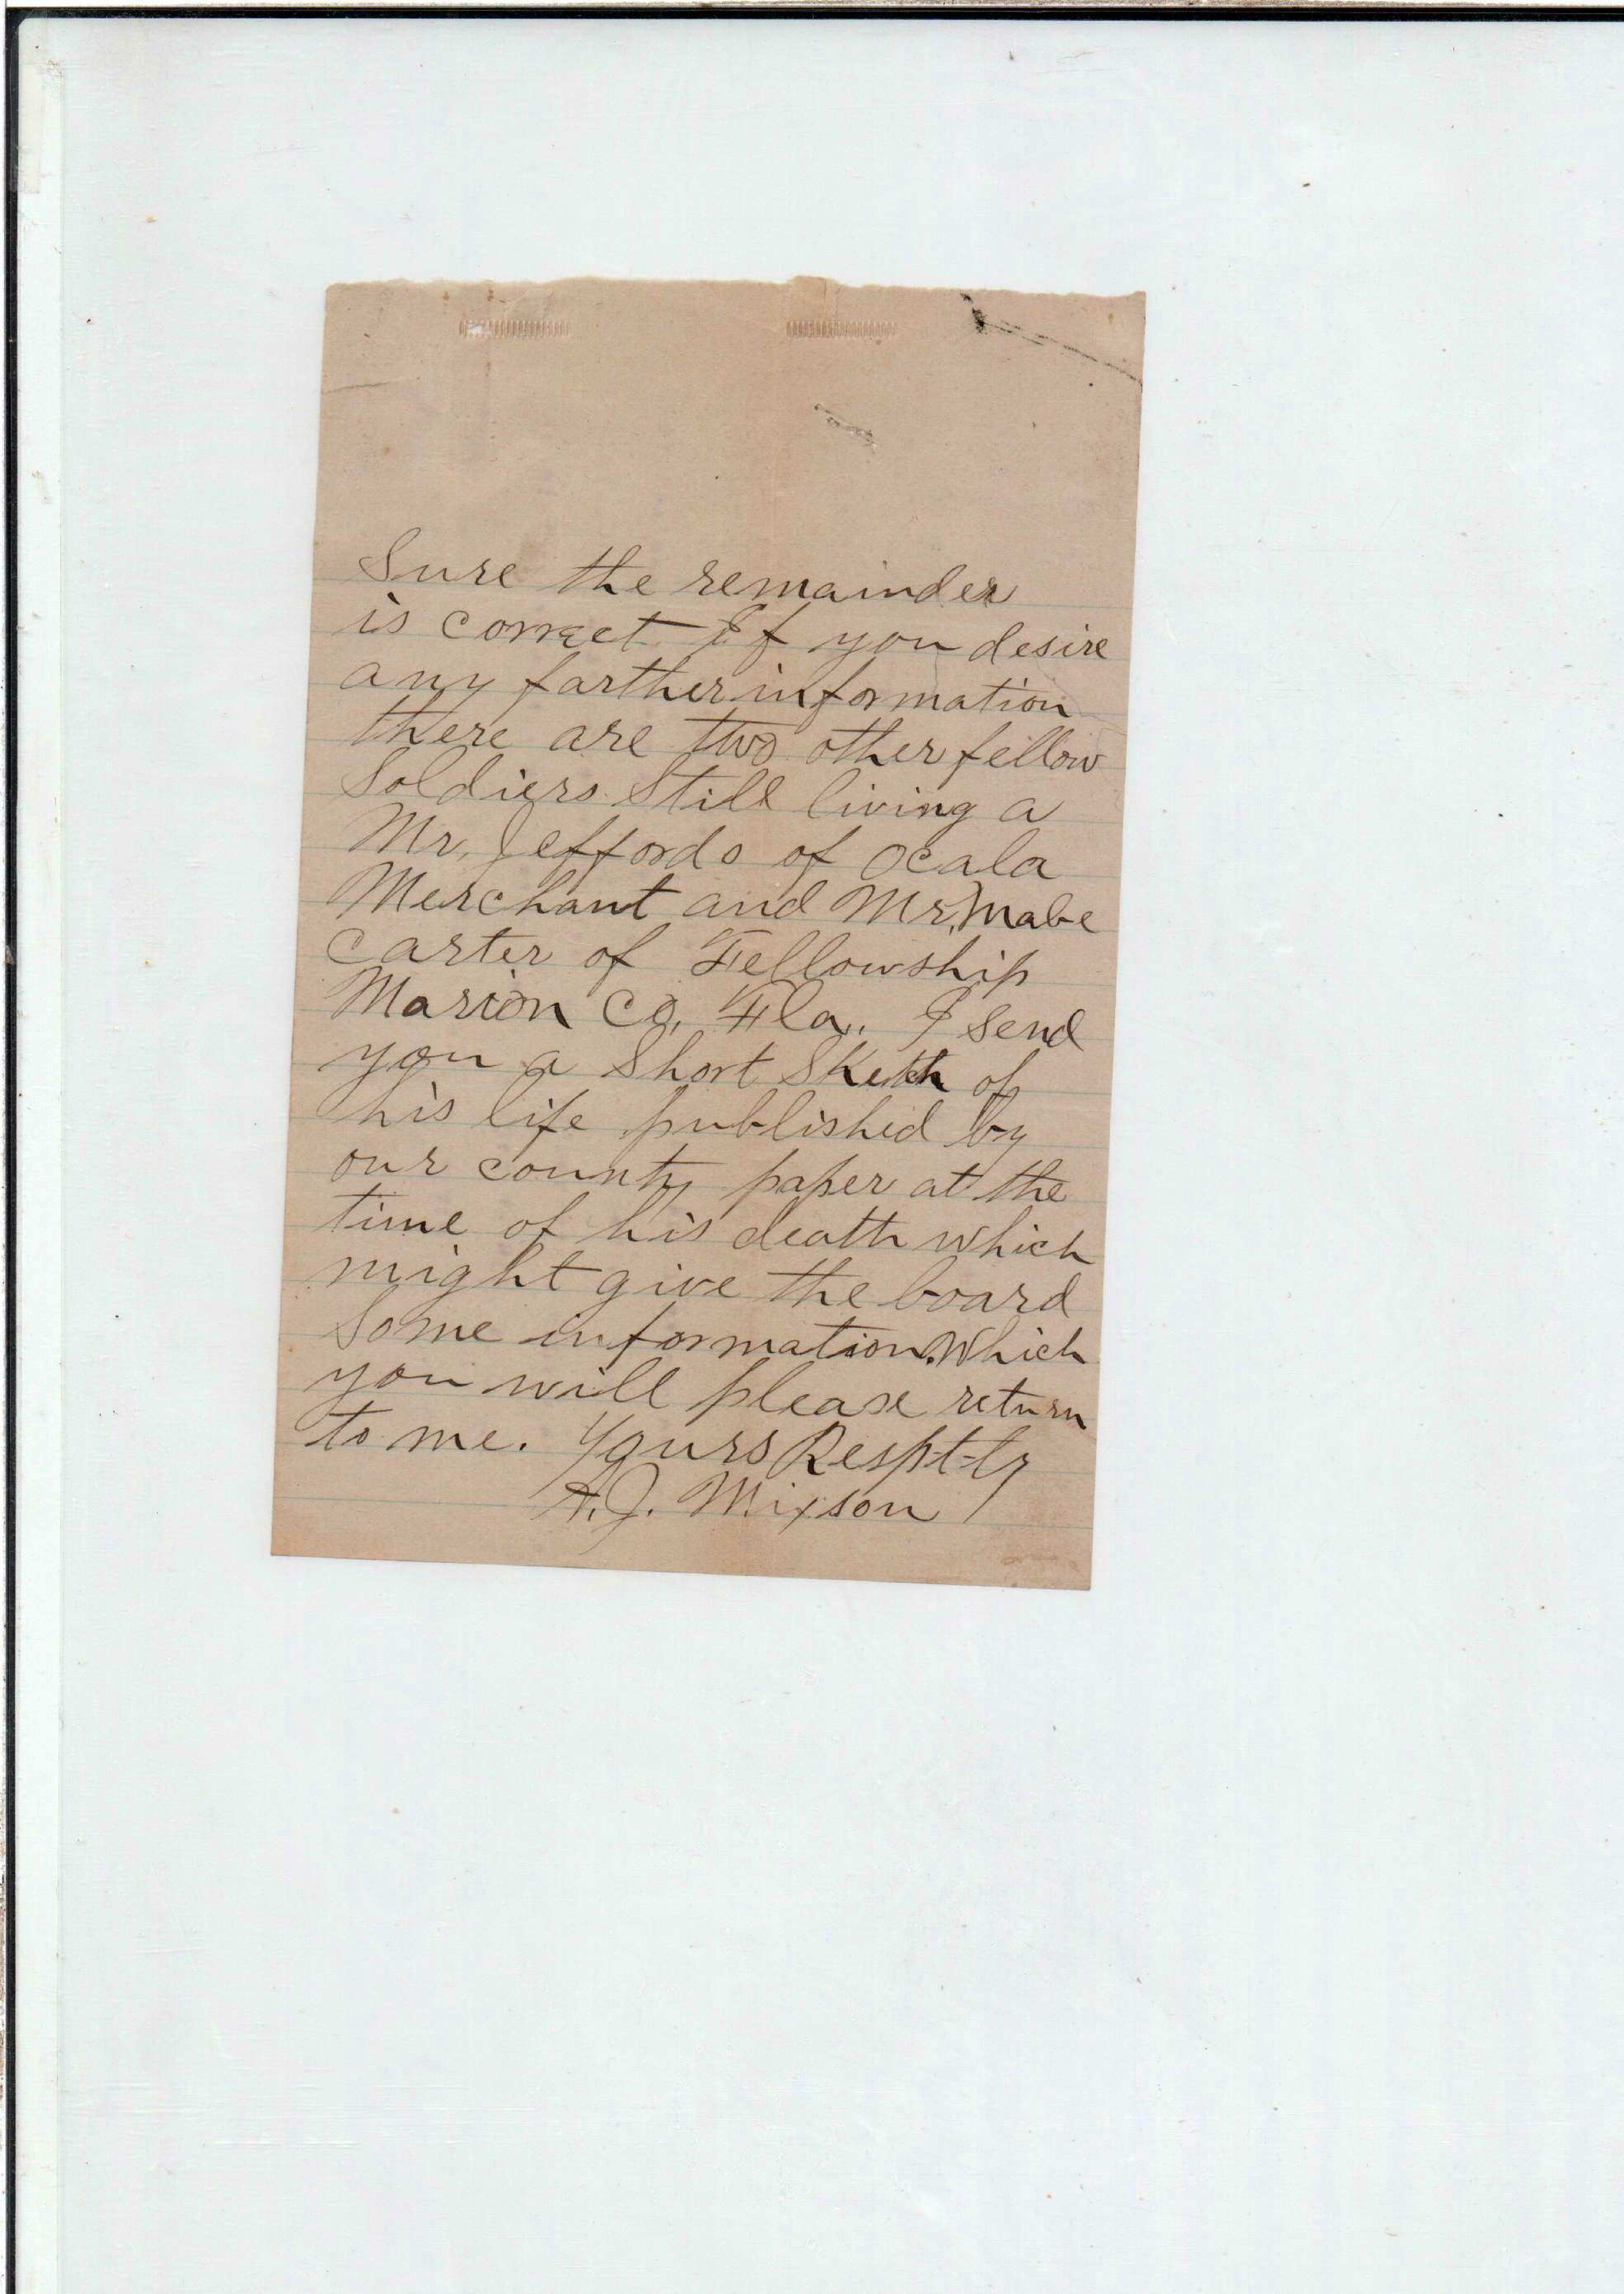 Sure the remainder
is correct If you desire
any farther information
there are two other fellow
Soldiers Still living a
Mr. Jeffords of Ocala
Merchant and Mr. Mabe
Carter of Fellowship
Marion Co. Fla. I send
you a Short Sketch of
his life published by
our county paper at the
time of his death which
might give the board
Some information. Which
you will please return
to me. Yours Respt-ly
A.J. Mixson